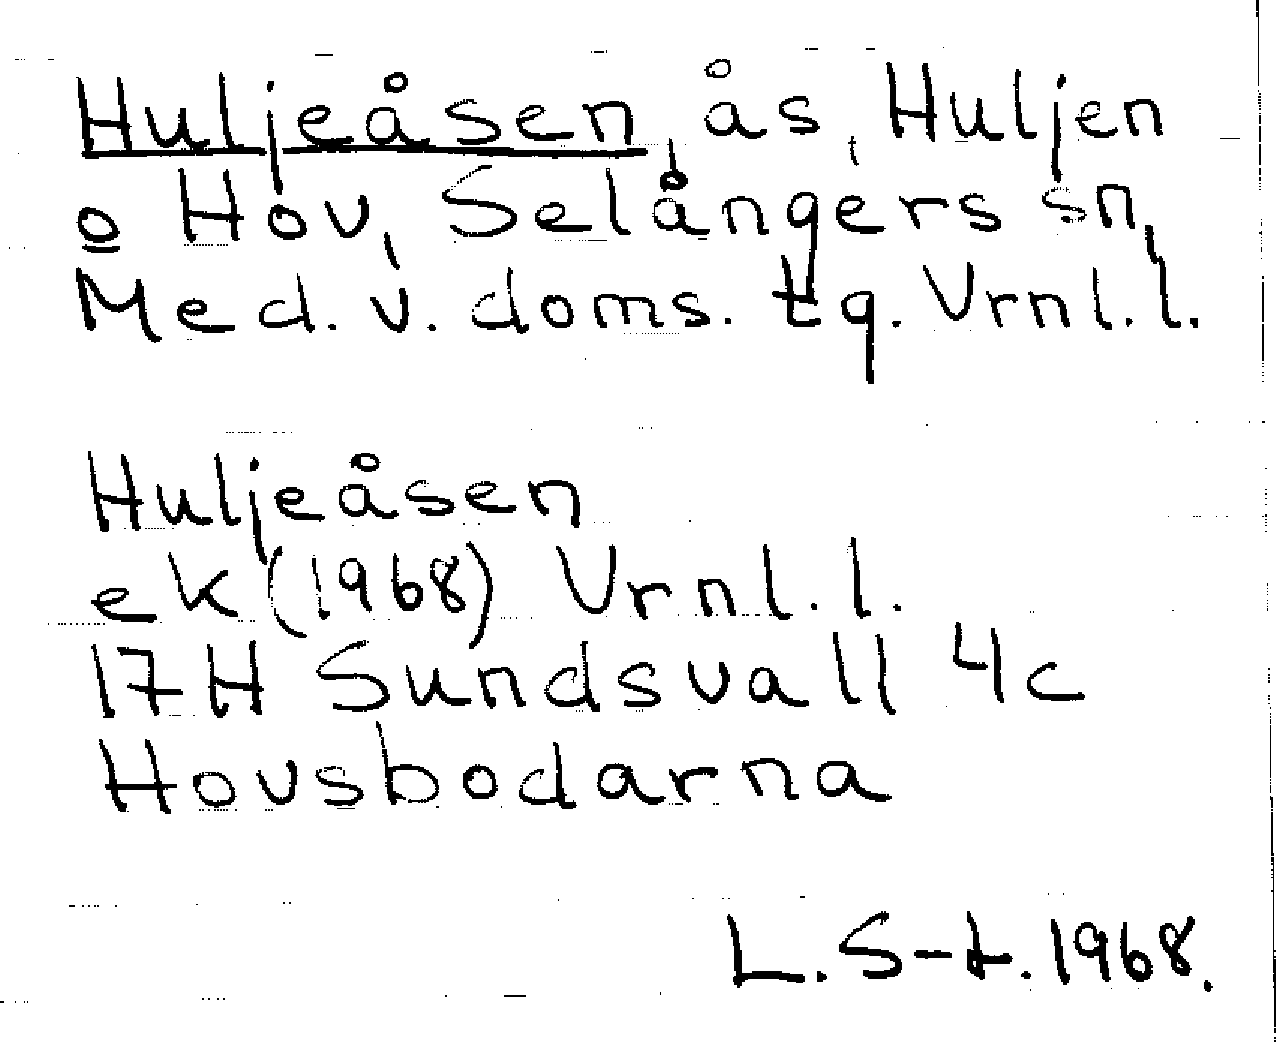 Huljeåsen, ås, Huljen
o Hov, Selångers sn,
Med. v. doms. tg. Vrnl. l.
Huljeåsen
ek (1968) Vrnl. l.
17H Sundsvall 4c
Hovsbodarna
L. S-t. 1968.